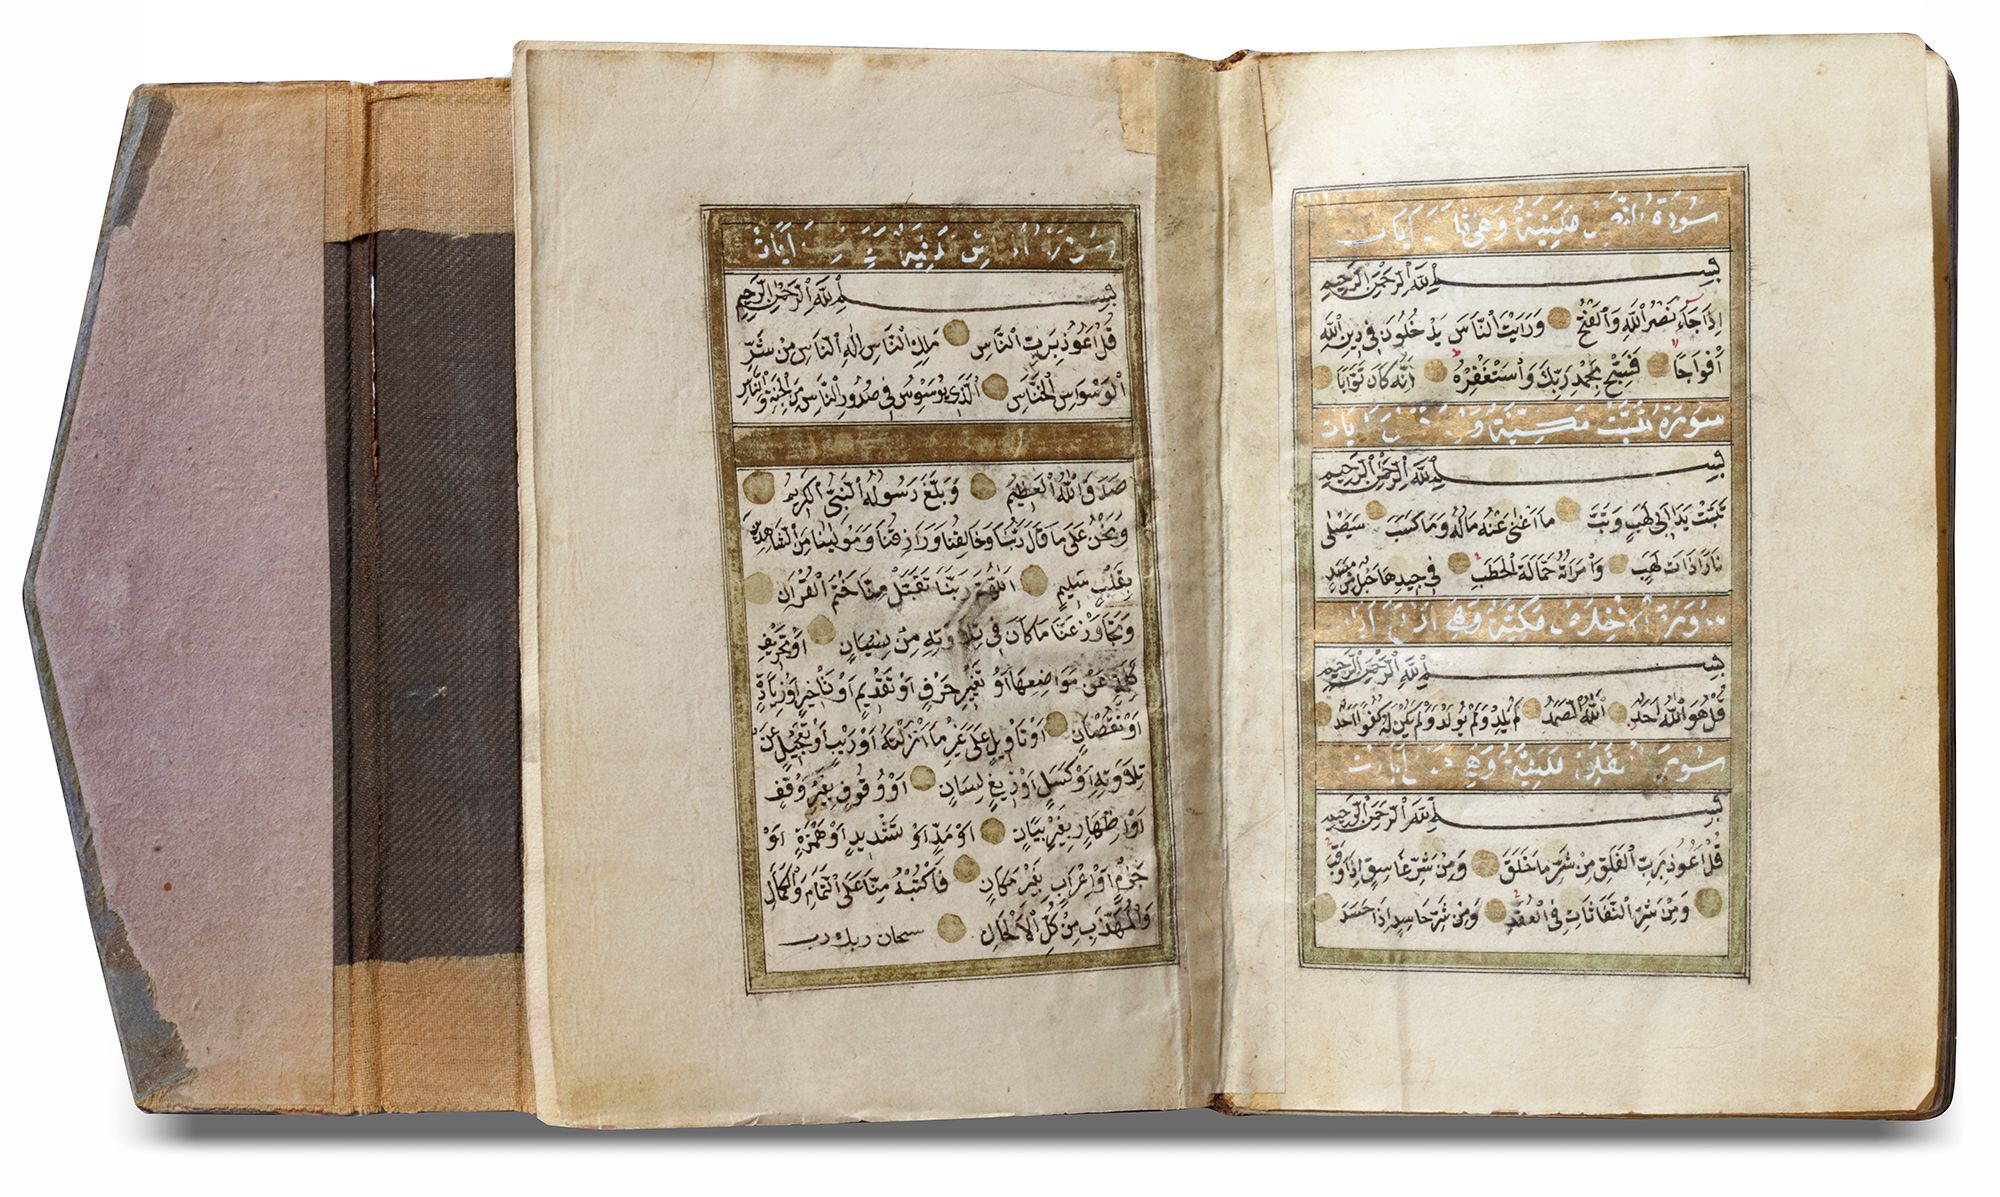 سُورَةُ النَّصْرِ مَدَنِيَّةٌ وَهِيَ ثَلَاثُ اٰيَاتٍ
بِسْمِ اللّٰهِ الرَّحْمٰنِ الرَّحِيمِ
اِذَا جَاءَ نَصْرُ اللّٰهِ وَالْفَتْحُ وَرَاَيْتَ النَّاسَ يَدْخُلُونَ فِي دِينِ اللّٰهِ
اَفْوَاجًا فَسَبِّحْ بِحَمْدِ رَبِّكَ وَاسْتَغْفِرْهُ اِنَّهُ كَانَ تَوَّابًا
سُورَةُ تَبَّتْ مَكِّيَّةٌ وَهِيَ خَمْسُ اٰيَاتٍ
بِسْمِ اللّٰهِ الرَّحْمٰنِ الرَّحِيمِ
تَبَّتْ يَدَا اَبِي لَهَبٍ وَتَبَّ مَا اَغْنٰى عَنْهُ مَالُهُ وَمَا كَسَبَ سَيَصْلٰى
نَارًا ذَاتَ لَهَبٍ وَامْرَاَتُهُ حَمَّالَةَ الْحَطَبِ فِي جِيدِهَا حَبْلٌ مِنْ مَسَدٍ
سُورَةُ الْاِخْلَاصِ مَكِّيَّةٌ وَهِيَ اَرْبَعُ اٰيَاتٍ
بِسْمِ اللّٰهِ الرَّحْمٰنِ الرَّحِيمِ
قُلْ هُوَ اللّٰهُ اَحَدٌ اَللّٰهُ الصَّمَدُ لَمْ يَلِدْ وَلَمْ يُولَدْ وَلَمْ يَكُنْ لَهُ كُفُوًا اَحَدٌ
سُورَةُ الْفَلَقِ مَدَنِيَّةٌ وَهِيَ اٰيَاتٍ
بِسْمِ اللّٰهِ الرَّحْمٰنِ الرَّحِيمِ
قُلْ اَعُوذُ بِرَبِّ الْفَلَقِ مِنْ شَرِّ مَا خَلَقَ وَمِنْ شَرِّ غَاسِقٍ اِذَا وَقَبَ
وَمِنْ شَرِّ النَّفَّاثَاتِ فِي الْعُقَدِ وَمِنْ شَرِّ حَاسِدٍ اِذَا حَسَدَ
سُورَةُ النَّاسِ مَدَنِيَّةٌ اٰيَاتٍ
بِسْمِ اللّٰهِ الرَّحْمٰنِ الرَّحِيمِ
قُلْ اَعُوذُ بِرَبِّ النَّاسِ مَلِكِ النَّاسِ اِلٰهِ النَّاسِ مِنْ شَرِّ
الْوَسْوَاسِ الْخَنَّاسِ اَلَّذِي يُوَسْوِسُ فِي صُدُورِ النَّاسِ مِنَ الْجِنَّةِ وَالنَّاسِ
صَدَقَ اللّٰهُ الْعَظِيمُ وَبَلَّغَ رَسُولُهُ النَّبِيُّ الْكَرِيمُ
وَنَحْنُ عَلٰى مَا قَالَ رَبُّنَا وَخَالِقُنَا وَرَازِقُنَا وَمَوْلٰينَا مِنَ الشَّاهِدِينَ
بِقَلْبٍ سَلِيمٍ اَللّٰهُمَّ رَبَّنَا تَقَبَّلْ مِنَّا خَتْمَ الْقُرْاٰنِ
وَتَجَاوَزْ عَنَّا مَا كَانَ فِي تِلَاوَتِهِ مِنْ نِسْيَانٍ اَوْ تَحْرِيفِ
كَلِمَةٍ عَنْ مَوَاضِعِهَا اَوْ تَغْيِيرِ حَرْفٍ اَوْ تَقْدِيمٍ اَوْ تَاْخِيرٍ اَوْ زِيَادَةٍ
اَوْ نُقْصَانٍ اَوْ تَاْوِيلٍ عَلٰى غَيْرِ مَا اَنْزَلْتَهُ اَوْ رَيْبٍ اَوْ تَعْجِيلٍ عَنْ
تِلَاوَتِهِ اَوْ كَسَلٍ اَوْ زَيْغِ لِسَانٍ اَوْ وُقُوفٍ بِغَيْرِ وَقْفٍ
اَوْ اِظْهَارٍ بِغَيْرِ بَيَانٍ اَوْ مَدٍّ اَوْ تَشْدِيدٍ اَوْ هَمْزَةٍ اَوْ
جَزْمٍ اَوْ اِعْرَابٍ بِغَيْرِ مَكَانٍ فَاكْتُبْهُ مِنَّا عَلَى التَّمَامِ وَالْكَمَالِ
وَالْمُهَذَّبِ مِنْ كُلِّ الْاَلْحَانِ سبحان ربك رب